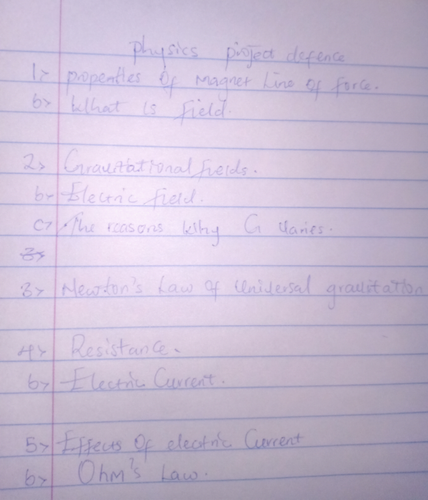 Physics project defence
1> properties of magnet Line of force.
b> What is field.
2> Gravitational fields.
b> Electric field.
c> The reasons why G varies.
3>
3> Newton's Law of universal gravitation
4> Resistance.
b> Electric Current.
5> Effects of electric Current
b> Ohm's Law.